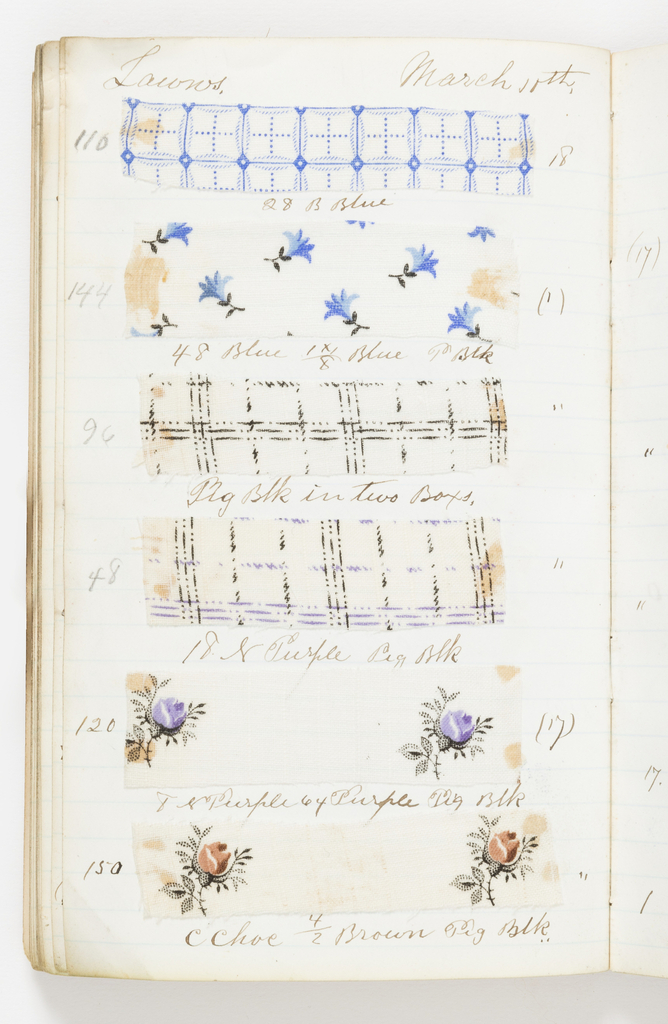 Lawns. March 11th,
110 18
28 B Blue
144 (1)
48 Blue Blue Blk
96 "
Pig Blk in two Boxs.
48 "
18 N Purple Pig Blk
120 (17)
8 N Purple 64 Purple Pig Blk
150 "
C Choc 4/2 Brown Pig Blk
(17)
"
"
17.
1